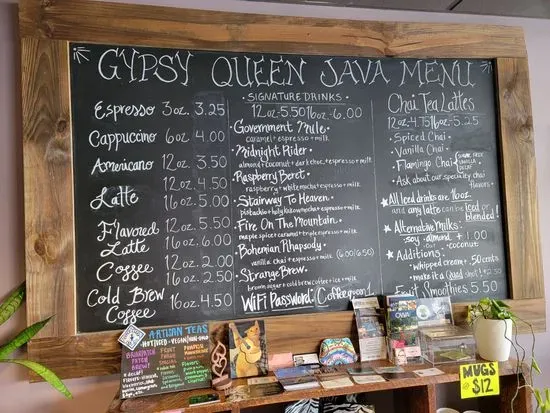 GYPSY QUEEN JAVA MENU
Espresso 3oz. 3.25
Cappuccino 6oz 4.00
Americano 12oz. 3.50
Latte 12oz. 4.50
16oz. 5.00
Flavored Latte 12oz. 5.50
16oz. 6.00
Coffee 12oz. 2.00
16oz. 2.50
Cold Brew Coffee 16oz. 4.50
SIGNATURE DRINKS
12oz-5.50 16oz-6.00
Government Mule
caramel + espresso + milk
Midnight Rider
almond + coconut + dark choc. + espresso + milk
Raspberry Beret
raspberry + white mocha + espresso + milk
Stairway To Heaven
pistachio + holy known mocha + espresso + milk
Fire On The Mountain
maple spice caramel + triple espresso + milk
Bohemian Rhapsody
vanilla chai + espresso + milk (6.00/6.50)
Strange Brew
brown sugar + cold brew coffee + ice + milk
WiFi Password: Coffeegoon1
Chai Tea Lattes
12oz-4.75 16oz-5.25
Spiced Chai
Vanilla Chai
Flamingo Chai SUGAR FREE VANILLA DECAF
Ask about our specialty chai flavors
All Iced drinks are 16oz.
and any latte can be Iced or blended!
Alternative Milks:
soy almond + 1.00
oat coconut
Additions:
whipped cream + 50 cents
make it a Quad shot! + 2.50
Fruit Smoothies 5.50
ARTISAN TEAS
HOT/ICED VEGAN
MUGS
$12